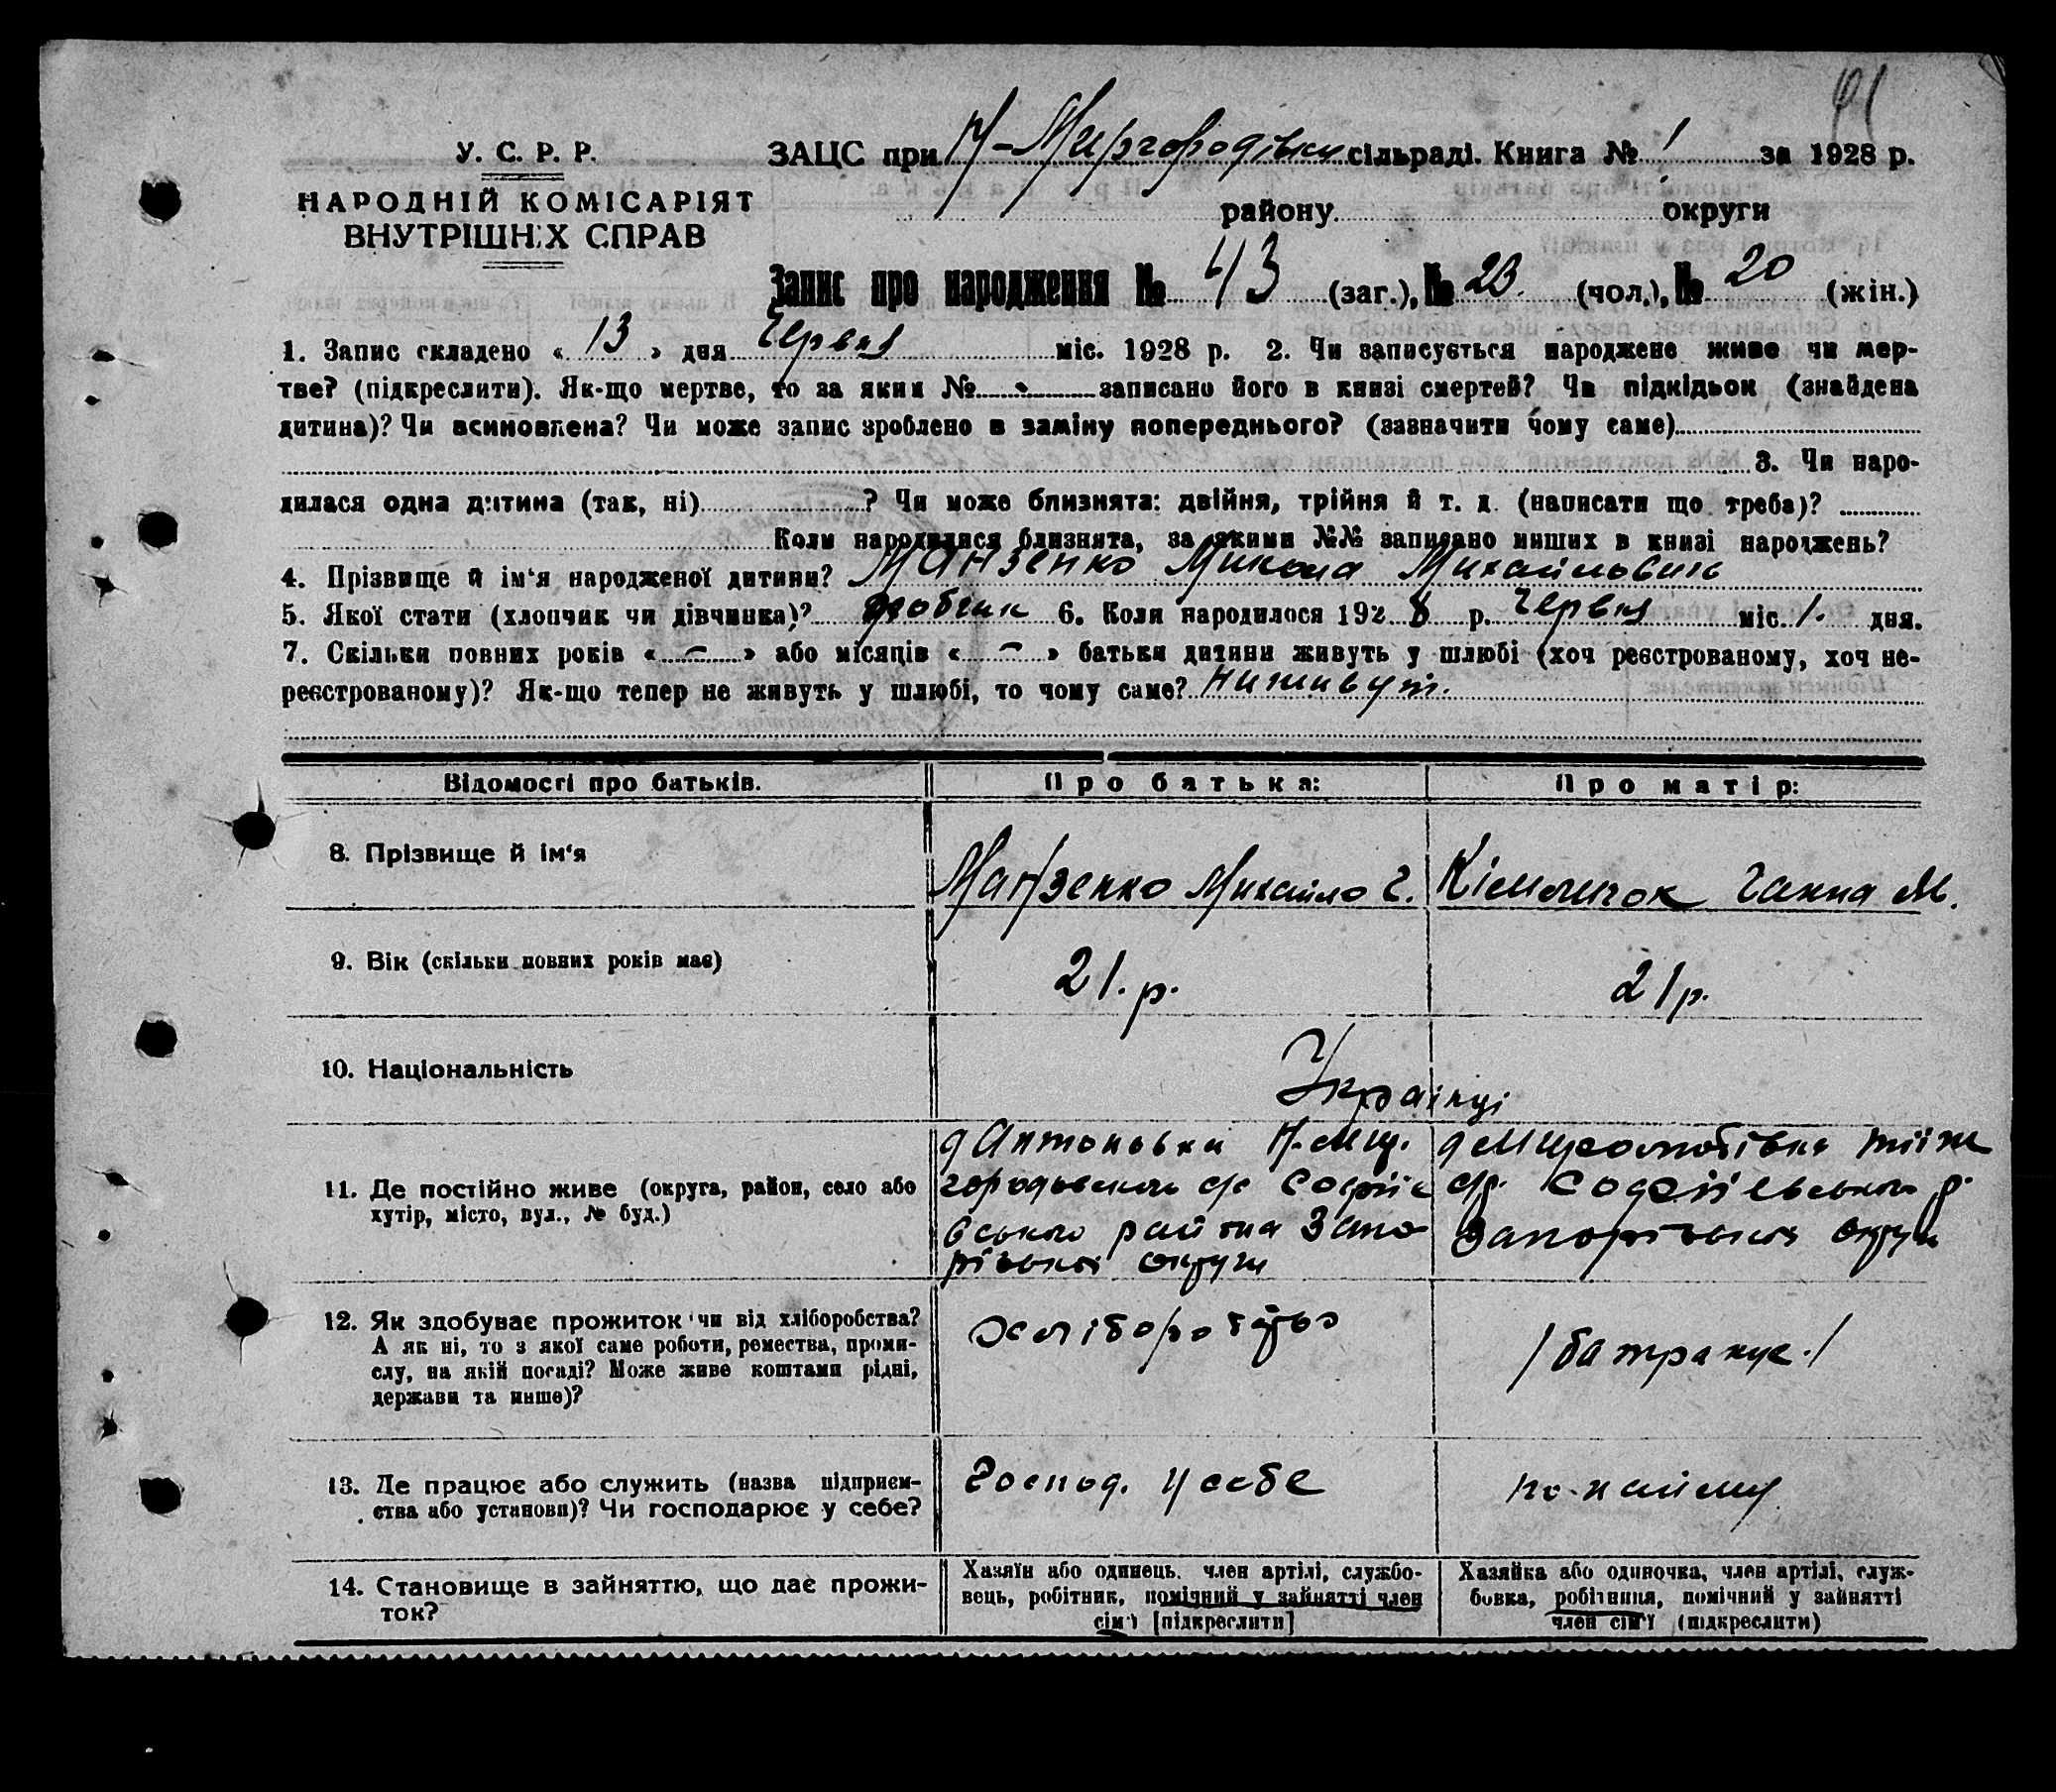 У. С. Р. Р.
НАРОДНІЙ КОМІСАРІЯТ
ВНУТРІШНІХ СПРАВ
ЗАЦС при Н-Миргородівки сільраді. Книга № 1 за 1928 р.
району округи
Запис про народження № 43 (заг.), № 23 (чол.), № 20 (жін.)
1. Запис складено « 13 » дня Червня міс. 1928 р. 2. Чи записується народжене живе чи мер-
тве? (підкреслити). Як-що мертве, то за яким № записано його в книзі смертей? Чи підкідьок (знайдена
дитина)? Чи всиновлена? Чи може запис зроблено в заміну попереднього? (зазначити чому саме)
3. Чи наро-
дилася одна дитина (так, ні) ? Чи може близнята: двійня, трійня й т. д. (написати що треба)?
Коли народилися близнята, за якими №№ записано инших в книзі народжень?
4. Прізвище й ім'я народженої дитини? Манзенко Микола Михайлович
5. Якої стати (хлопчик чи дівчинка)? 6. Коли народилося 1928 р. Червня міс. 1. дня.
7. Скільки повних років « – » або місяців « – » батьки дитини живуть у шлюбі (хоч реєстрованому, хоч не-
реєстрованому)? Як-що тепер не живуть у шлюбі, то чому саме? Ниживут.
Відомості про батьків. Про батька: Про матір:
8. Прізвище й ім'я Манзенко Михайло Г. Ганна М.
9. Вік (скільки повних років має) 21. р. 21 р.
10. Національність Українці
11. Де постійно живе (округа, район, село або
хутір, місто, вул., № буд.)
д Антоновка Н-Мир.
городовского с/с Софіїв
вського района Запо
різької округи
с/р. Софиївського р.
Запорізької округи
12. Як здобуває прожиток чи від хліборобства?
А як ні, то з якої саме роботи, ремества, проми-
слу, на якій посаді? Може живе коштами рідні,
держави та инше)?
хліборобство
/батракує./
13. Де працює або служить (назва підприєм-
ства або установи)? Чи господарює у себе?
Господ. у себе
по-найму
14. Становище в зайняттю, що дає прожи-
ток?
Хазяїн або одинець, член артілі, службо-
вець, робітник, помічний у зайнятті член
сім'ї [підкреслити]
Хазяйка або одиночка, член артілі, служ-
бовка, робітниця, помічний у зайнятті
член сім'ї (підкреслити)